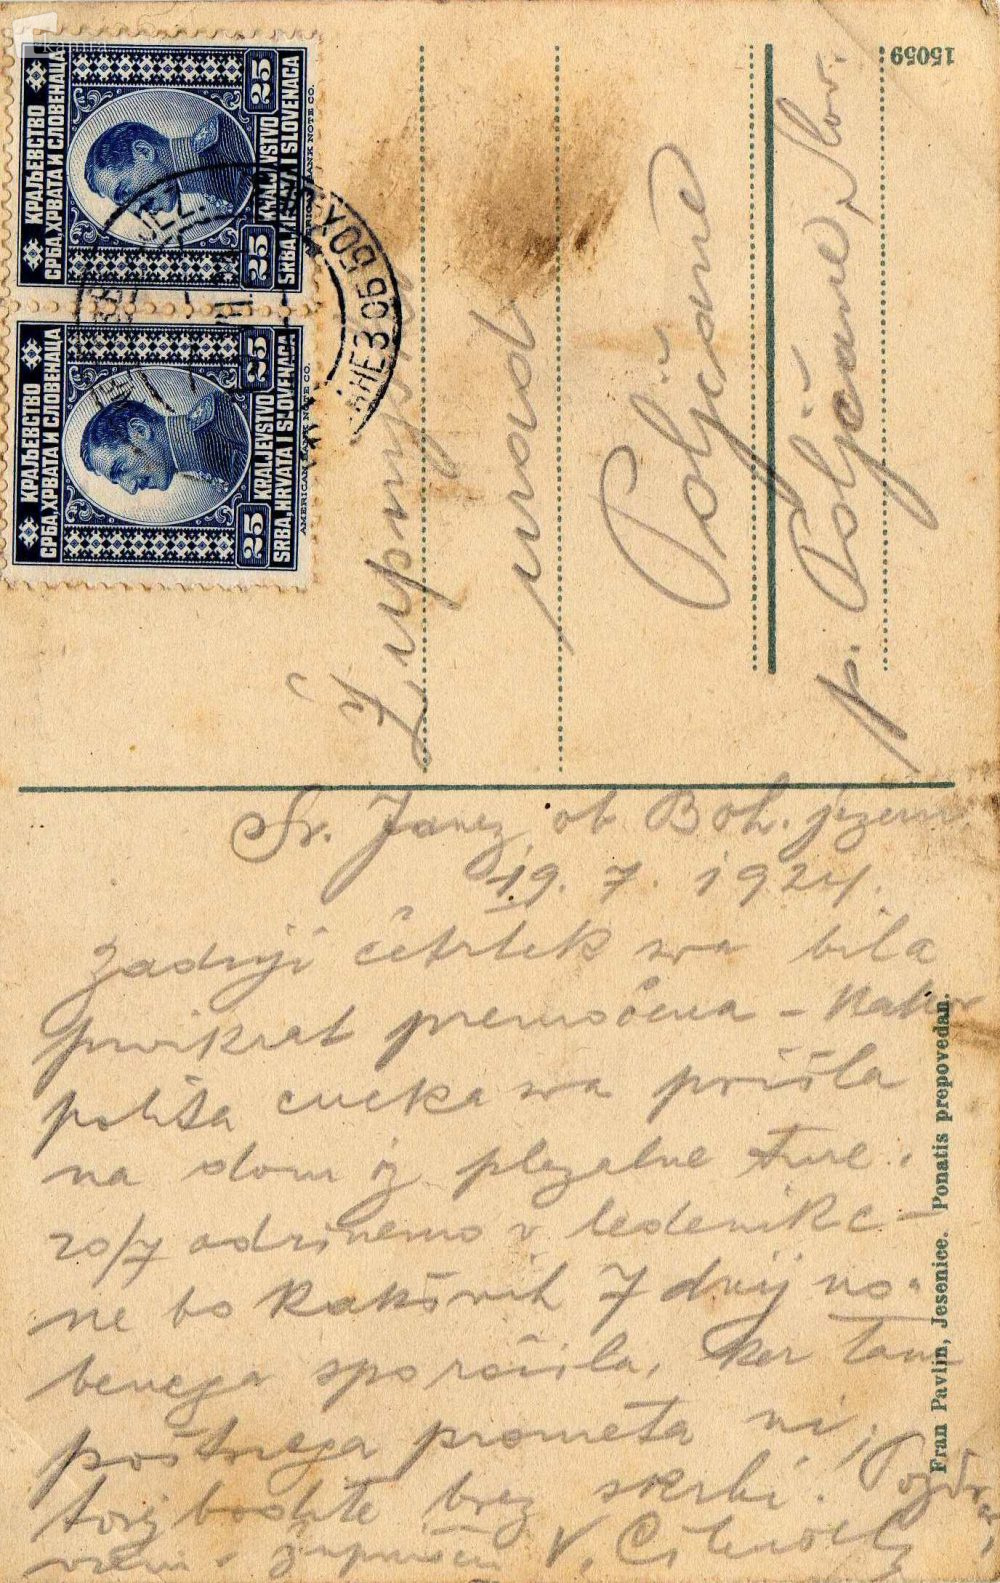 kamra
КРАЉЕВСТВО
СРБА, ХРВАТА И СЛОВЕНАЦА
25
25
KRALJEVSTVO
SRBA, HRVATA I SLOVENACA
AMERICAN BANK NOTE CO.
КРАЉЕВСТВО
СРБА, ХРВАТА И СЛОВЕНАЦА
25
25
KRALJEVSTVO
SRBA, HRVATA I SLOVENACA
AMERICAN BANK NOTE CO.
15059
Županijski
urad
Poljčane
p. Poljčane, Slov.
Sv. Janez ob Boh. jezeru
19. 7. 1924.
Zadnji četrtek sva bila
prvikrat premočena – kakor
politа cucka sva prišla
na dom iz plezalne ture.
20/7 odrinemo v ledenike –
ne bo kakšnih 7 dnij no-
benega sporočila, ker tam
poštnega prometa ni,
torej bodite brez skrbi. Pozdrav
vsem v župnišču V.
Fran Pavlin, Jesenice. Ponatis prepovedan.